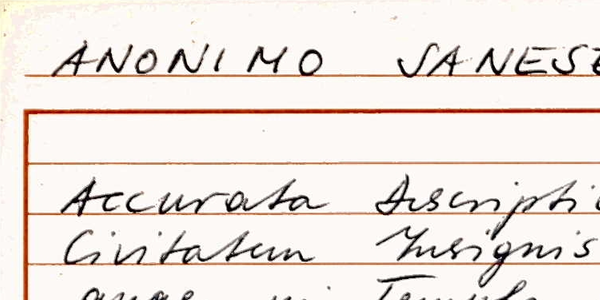 ANONIMO SANESE
Accurata descripti
Civitatum Insignis
quae in Templo